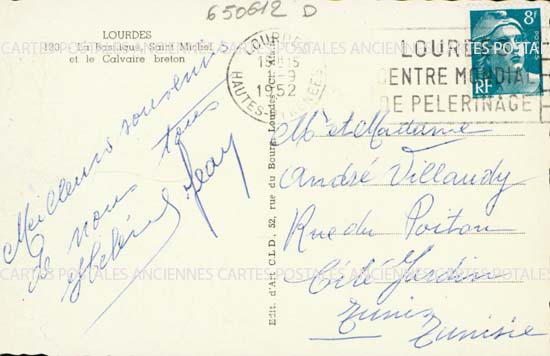 650612 D
LOURDES
130. La Basilique, Saint Michel
et le Calvaire breton
LOURDES
18H15
-9
1952
HAUTES-PYRENEES
LOURDES
CENTRE MONDIAL
DE PELERINAGE
8F
RF
Meilleurs souvenirs
de nous tous
Hélène Jean
Edit. d'Art C.L.D., 52, rue du Bourg, Lourdes
Mr et Madame
André Villaudy
Rue du Poitou
Cité Jardin
Tunis
Tunisie
CARTES POSTALES ANCIENNES CARTES POSTALES ANCIENNES CARTES POSTALES